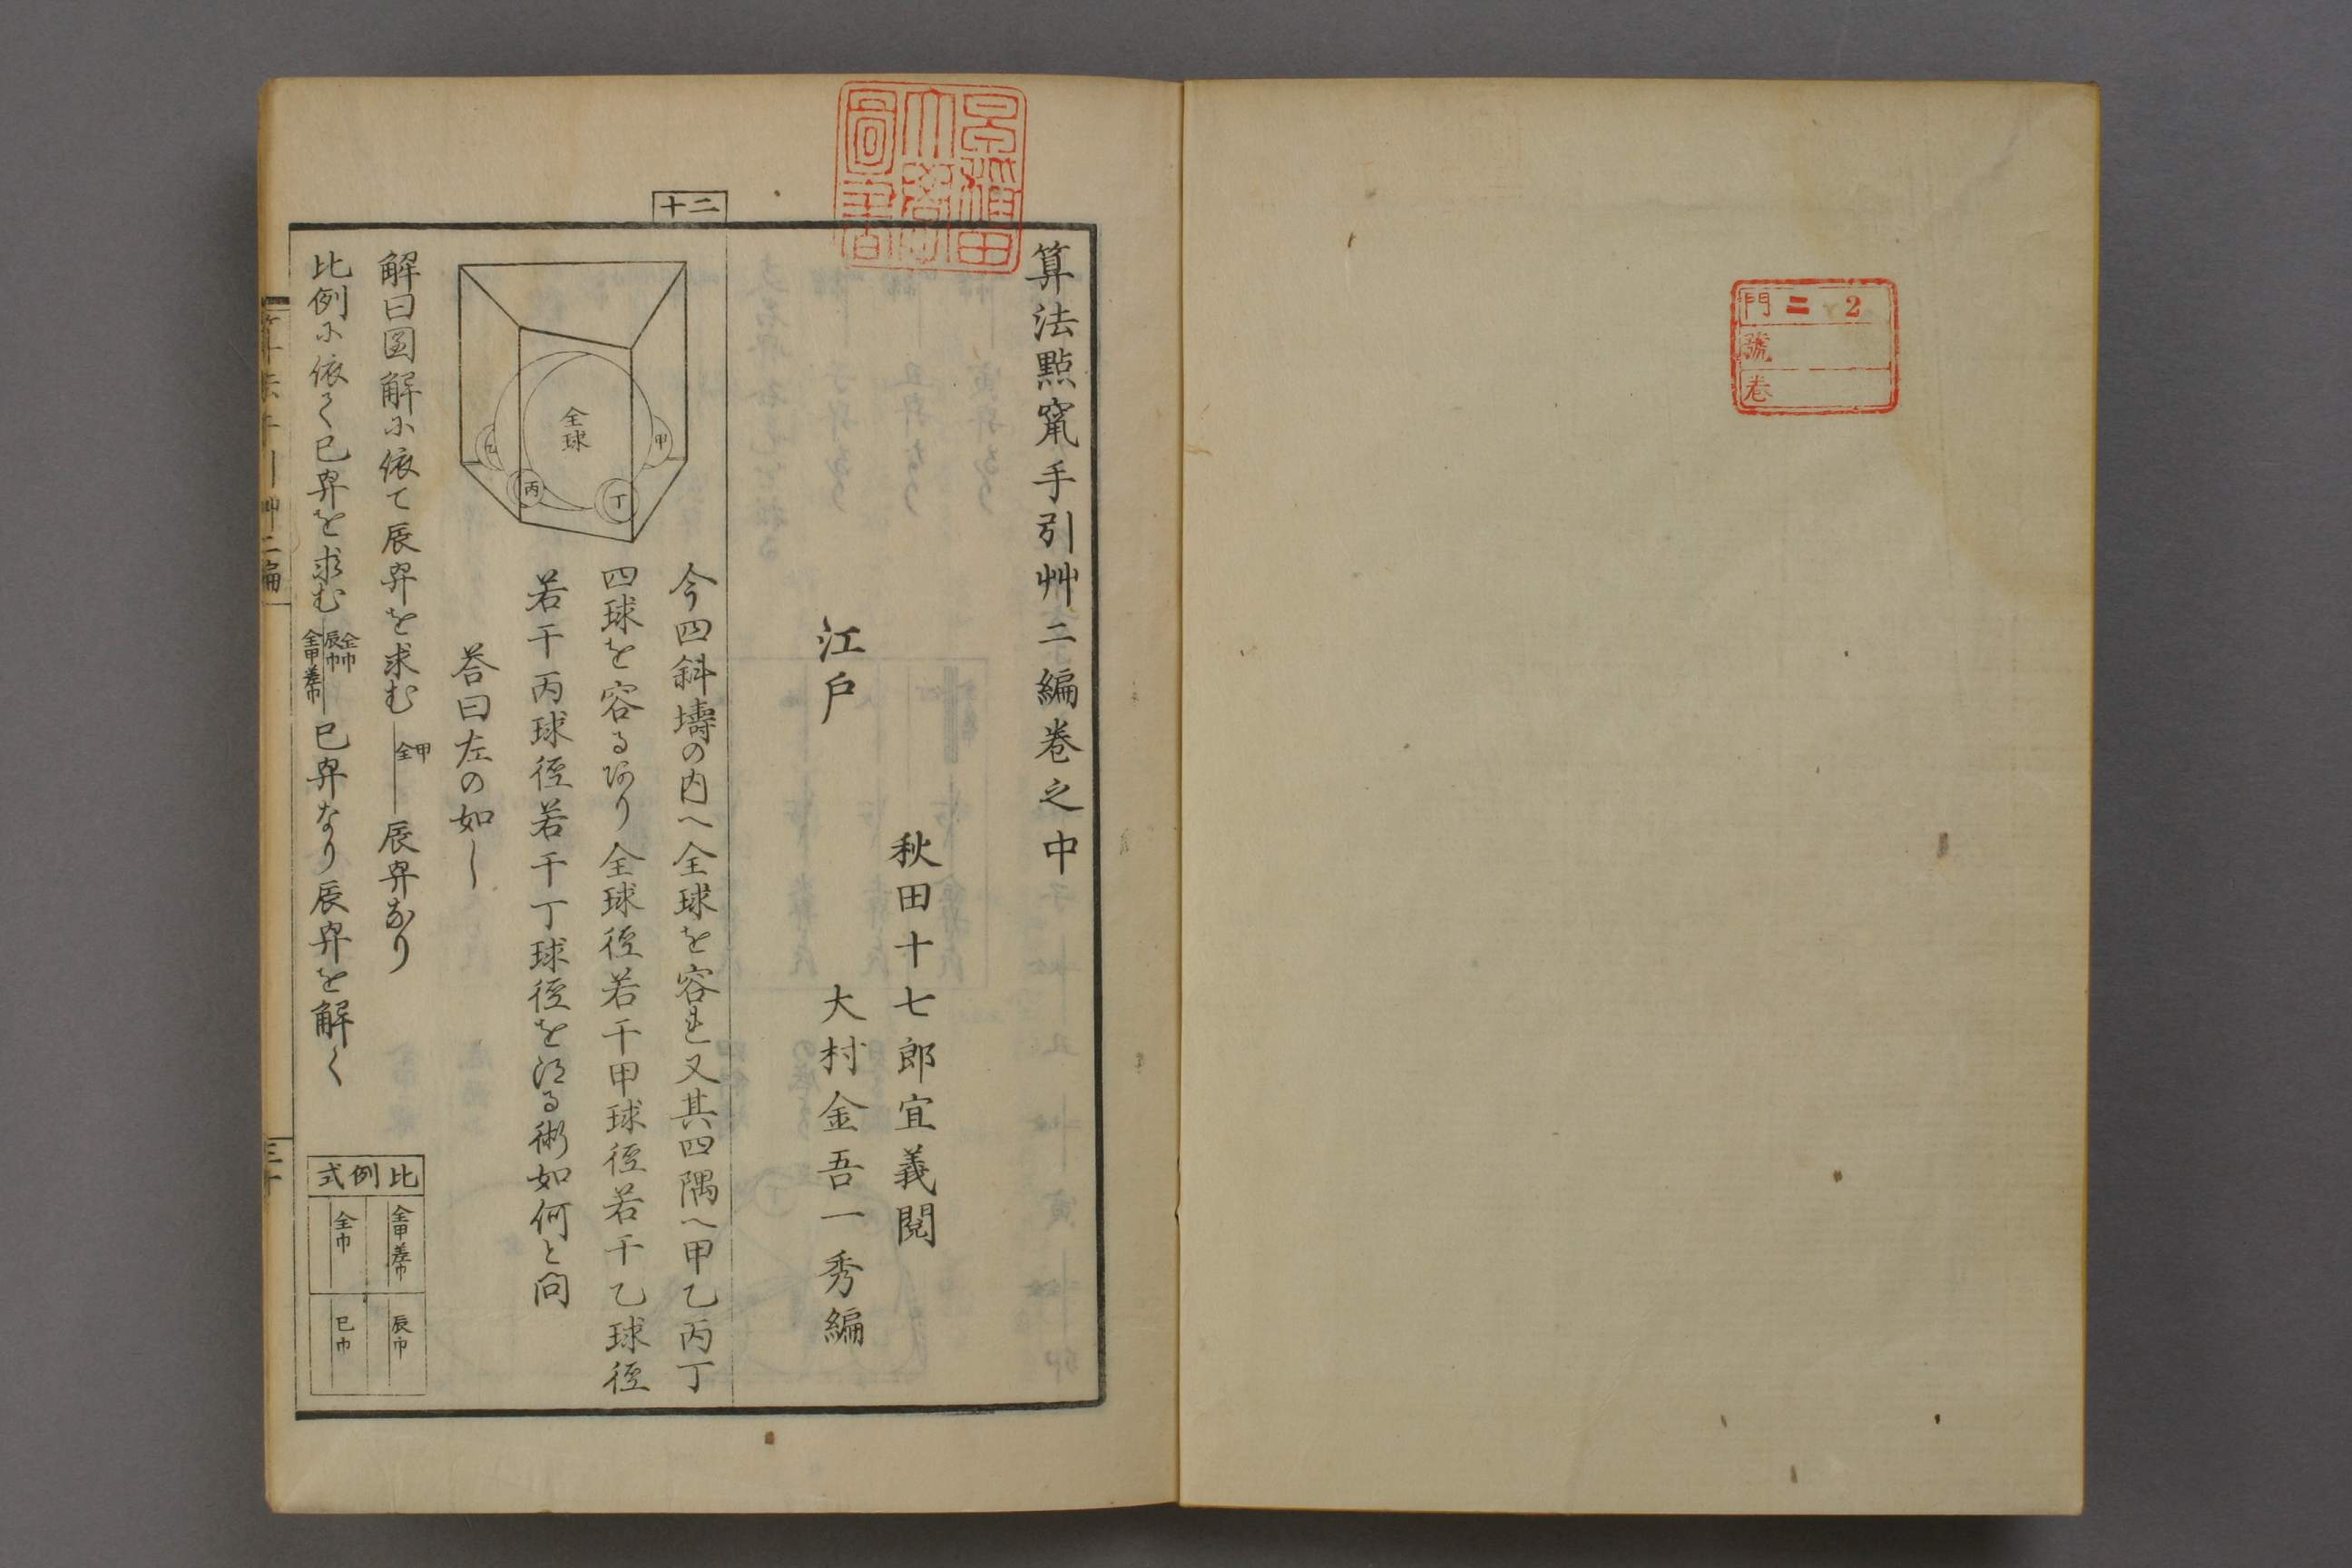 門 二 2
號
卷
算法點竄手引艸二編卷之中
秋田十七郎宜義閱
江戶 大村金吾一秀編
二十
今四斜壔の内へ全球を容れ又其四隅へ甲乙丙丁
四球を容るあり全球徑若干甲球徑若干乙球徑
若干丙球徑若干丁球徑を得る術如何と問
答曰左の如し
全球
甲
乙
丙
丁
解曰圖解に依て辰冪を求む 甲全 辰冪なり
比例に依て巳冪を求む 全巾辰巾 全甲差巾 巳冪なり辰冪を解く
比例式
全甲差巾 辰巾
全巾 巳巾